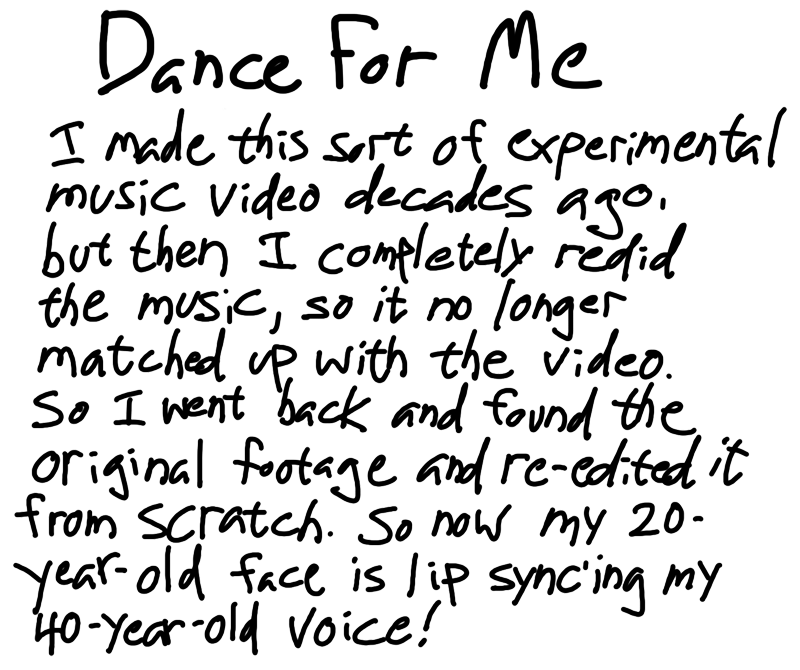 Dance For Me
I made this sort of experimental
music video decades ago.
but then I completely redid
the music, so it no longer
matched up with the video.
So I went back and found the
original footage and re-edited it
from scratch. So now my 20-
year-old face is lip sync'ing my
40-year-old voice!